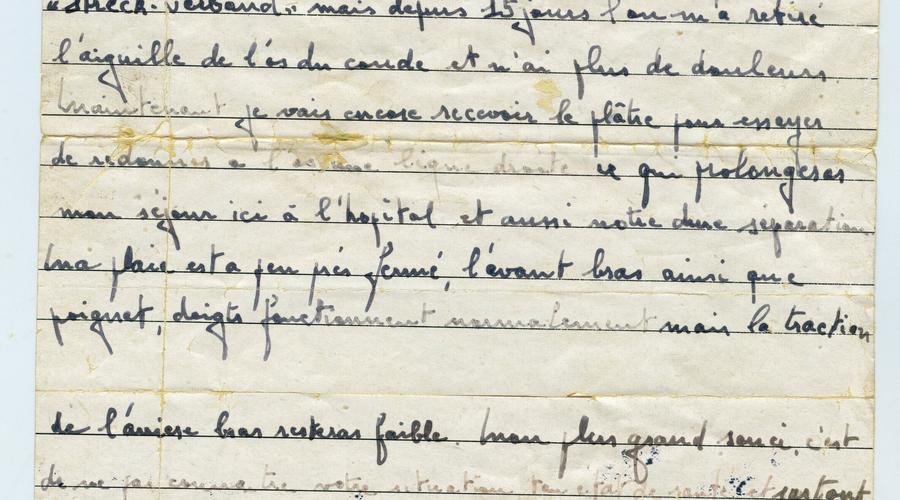 "Streck-Verband" mais depuis 15 jours l'on m'a retiré
l'aiguille de l'os du coude et n'ai plus de douleurs.
Maintenant je vais encore recevoir le plâtre pour essayer
de redonner a l'os une ligne droite ce qui prolongeras
mon séjour ici à l'hopital et aussi notre dure séparation
Ma plaie est a peu près fermé, l'avant bras ainsi que
poignet, doigts fonctionnent normalement mais la traction
de l'arriere bras resteras faible. Mon plus grand souci, c'est
de ne pas connaitre votre situation ton etat de santé et surtout